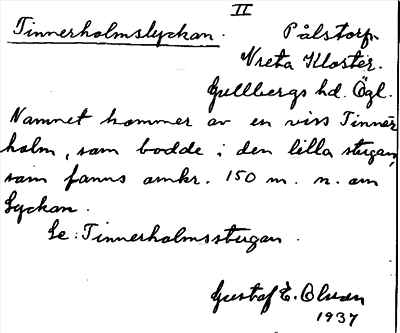 II
Tinnerholmslyckan. Pålstorp.
Vreta Kloster.
Gullbergs hd. Ögl.
Namnet kommer av en viss Tinner-
holm, som bodde i den lilla stugan,
som fanns omkr. 150 m. n. om
Lyckan.
Se: Tinnerholmsstugan.
Gustaf E. Olsson
1937